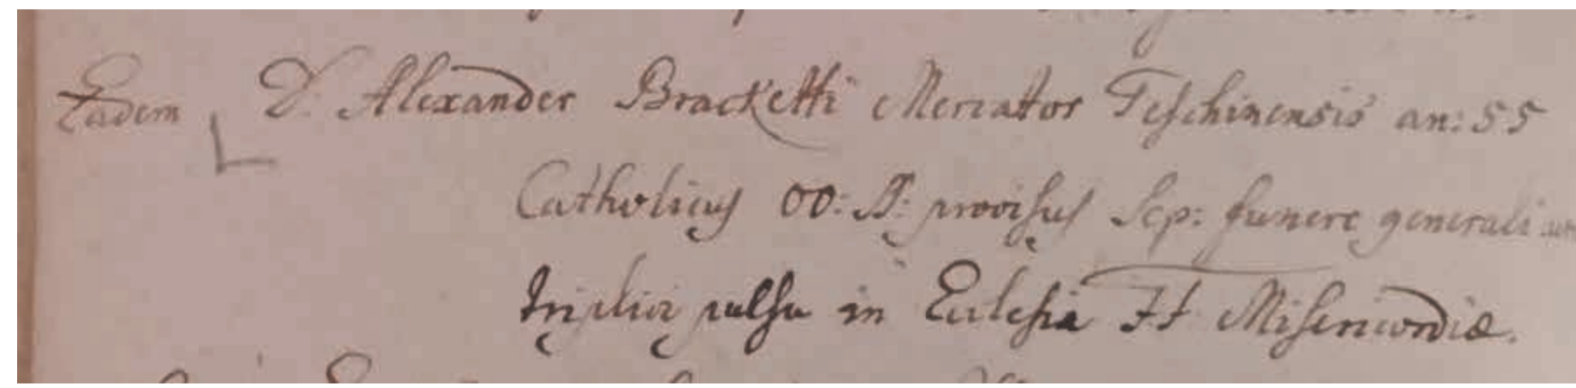 Eadem D. Alexander Bracketti Mercator Teschinensis an: 55
Catholicus OO: SS: provisus Sep: funere generali cum
triplici pulsu in Ecclesia FF Misericordiæ.